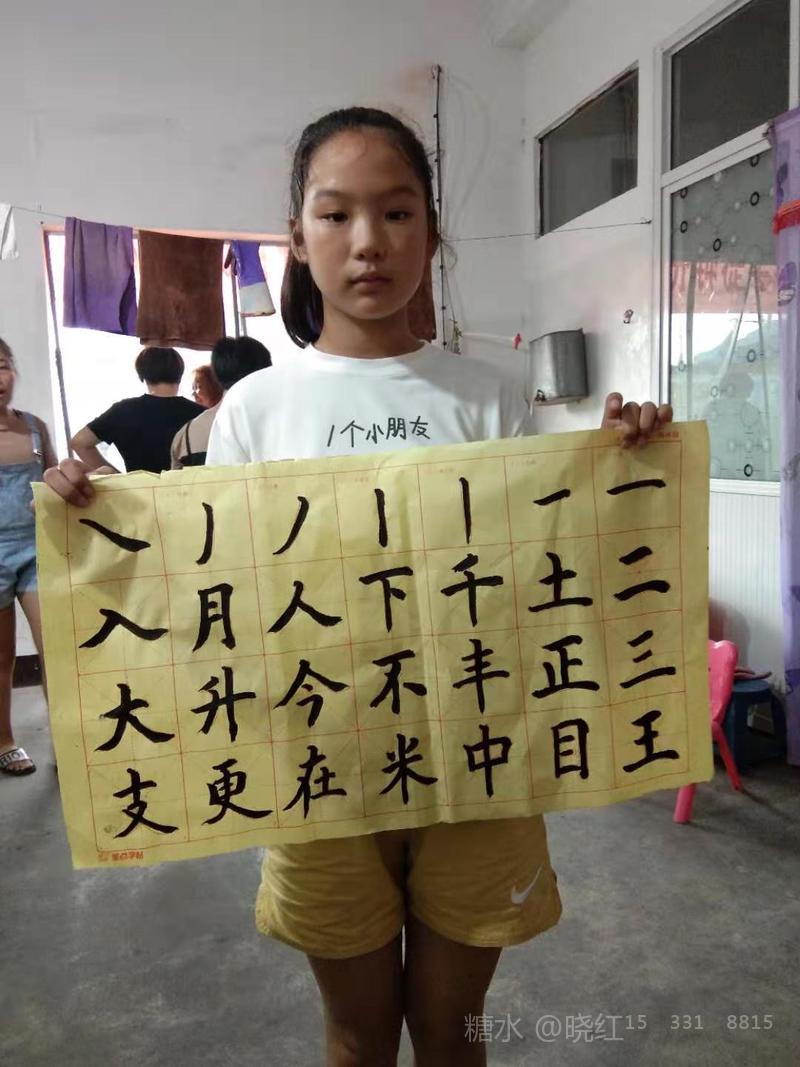 1个小朋友
一二三王
一土正目
丨千丰中
丨下不米
丿人今在
丿月升更
㇏入大支
墨点字帖
糖水 @晓红15 331 8815